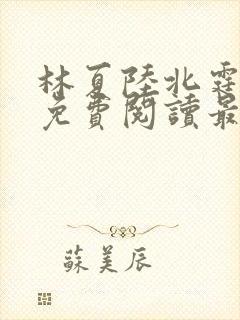 林夏陸北霆
免費閱讀最
蘇美辰